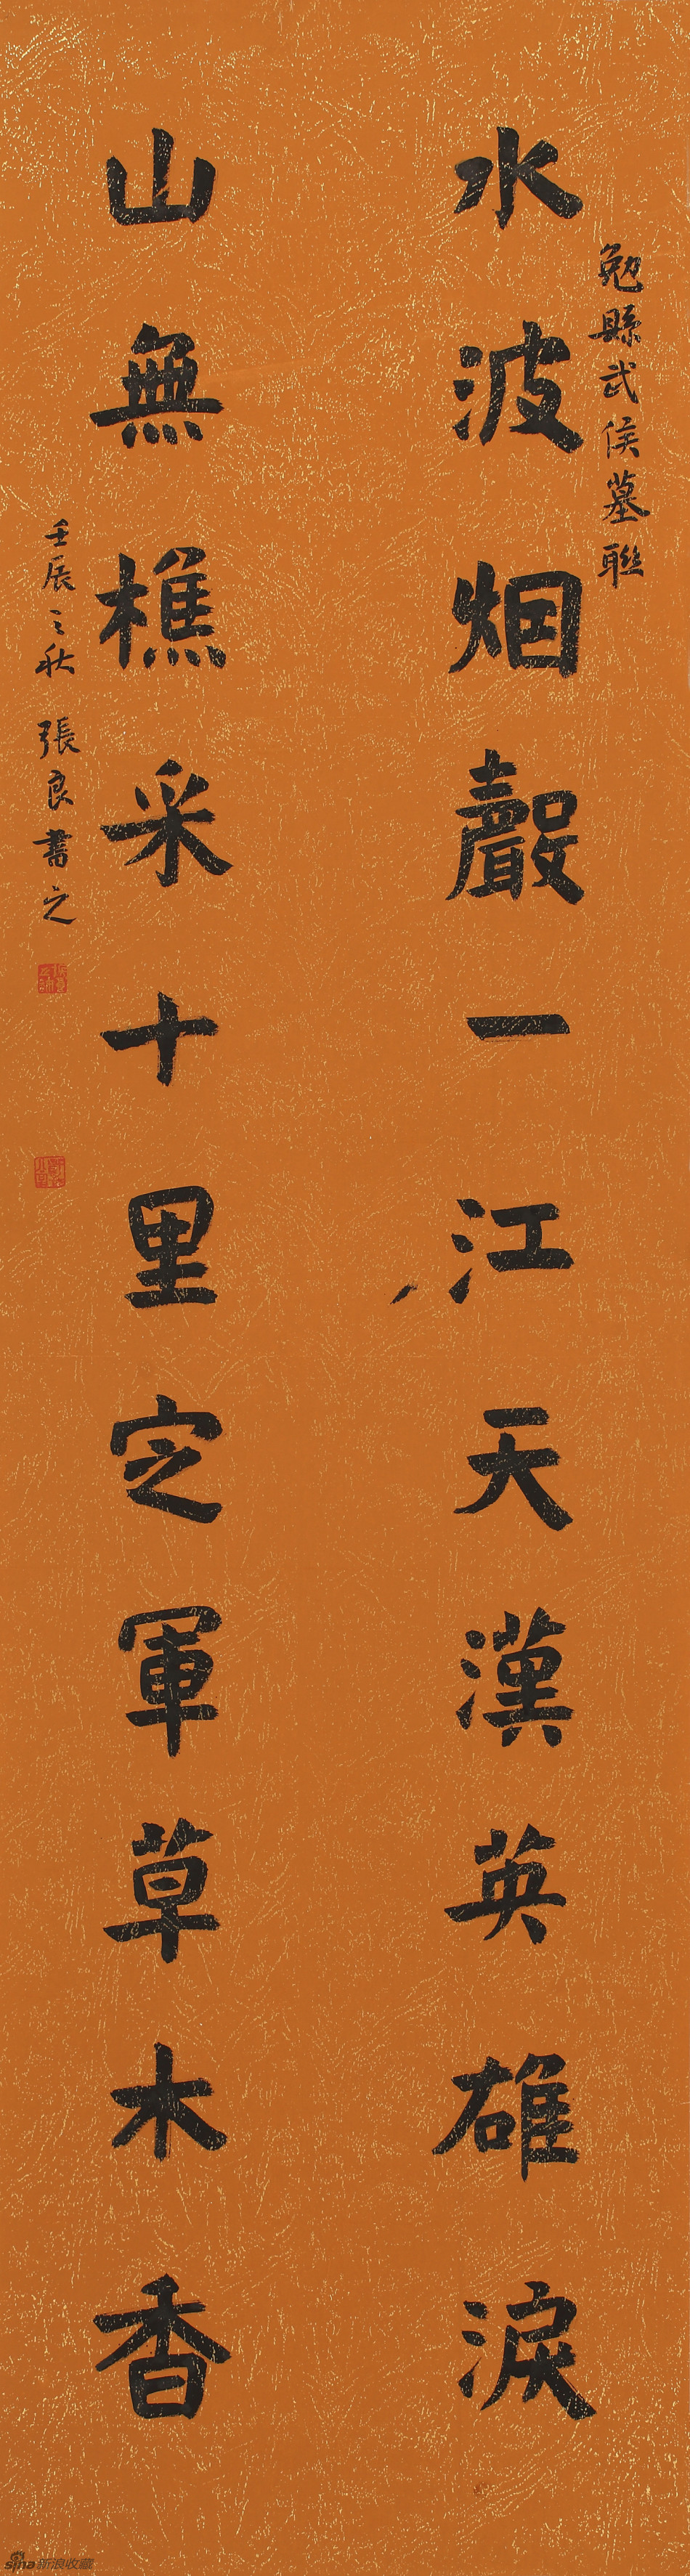 勉縣武侯墓聯
水波烟聲一江天漢英雄淚
山無樵采十里定軍草木香
壬辰之秋 張良書之
sina新浪收藏